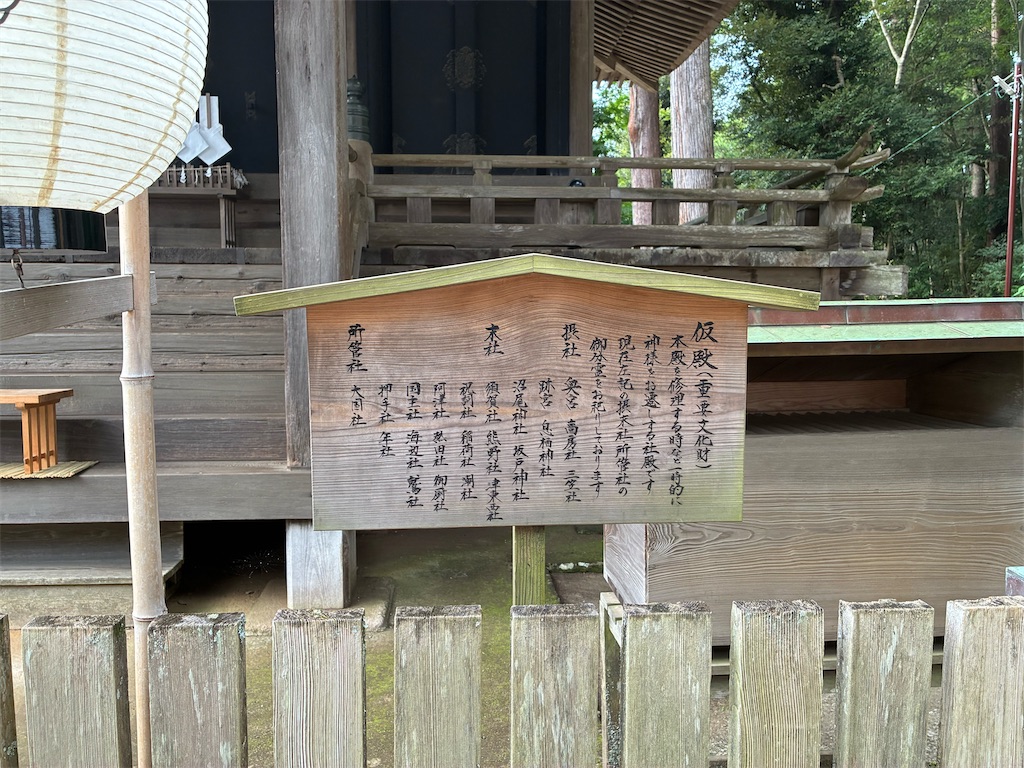 仮殿（重要文化財）
本殿を修理する時など一時的に
神様をお遷しする社殿です
現在左記の摂末社所管社の
御分霊をお祀りしております
摂社 奥宮 高房社 三笠社
跡宮 息栖神社
沼尾神社 坂戸神社
末社 須賀社 熊野社 津東西社
祝詞社 稲荷社 潮社
阿津社 熱田社 御厨社
国主社 海辺社 鷲社
押手社 年社
所管社 大国社